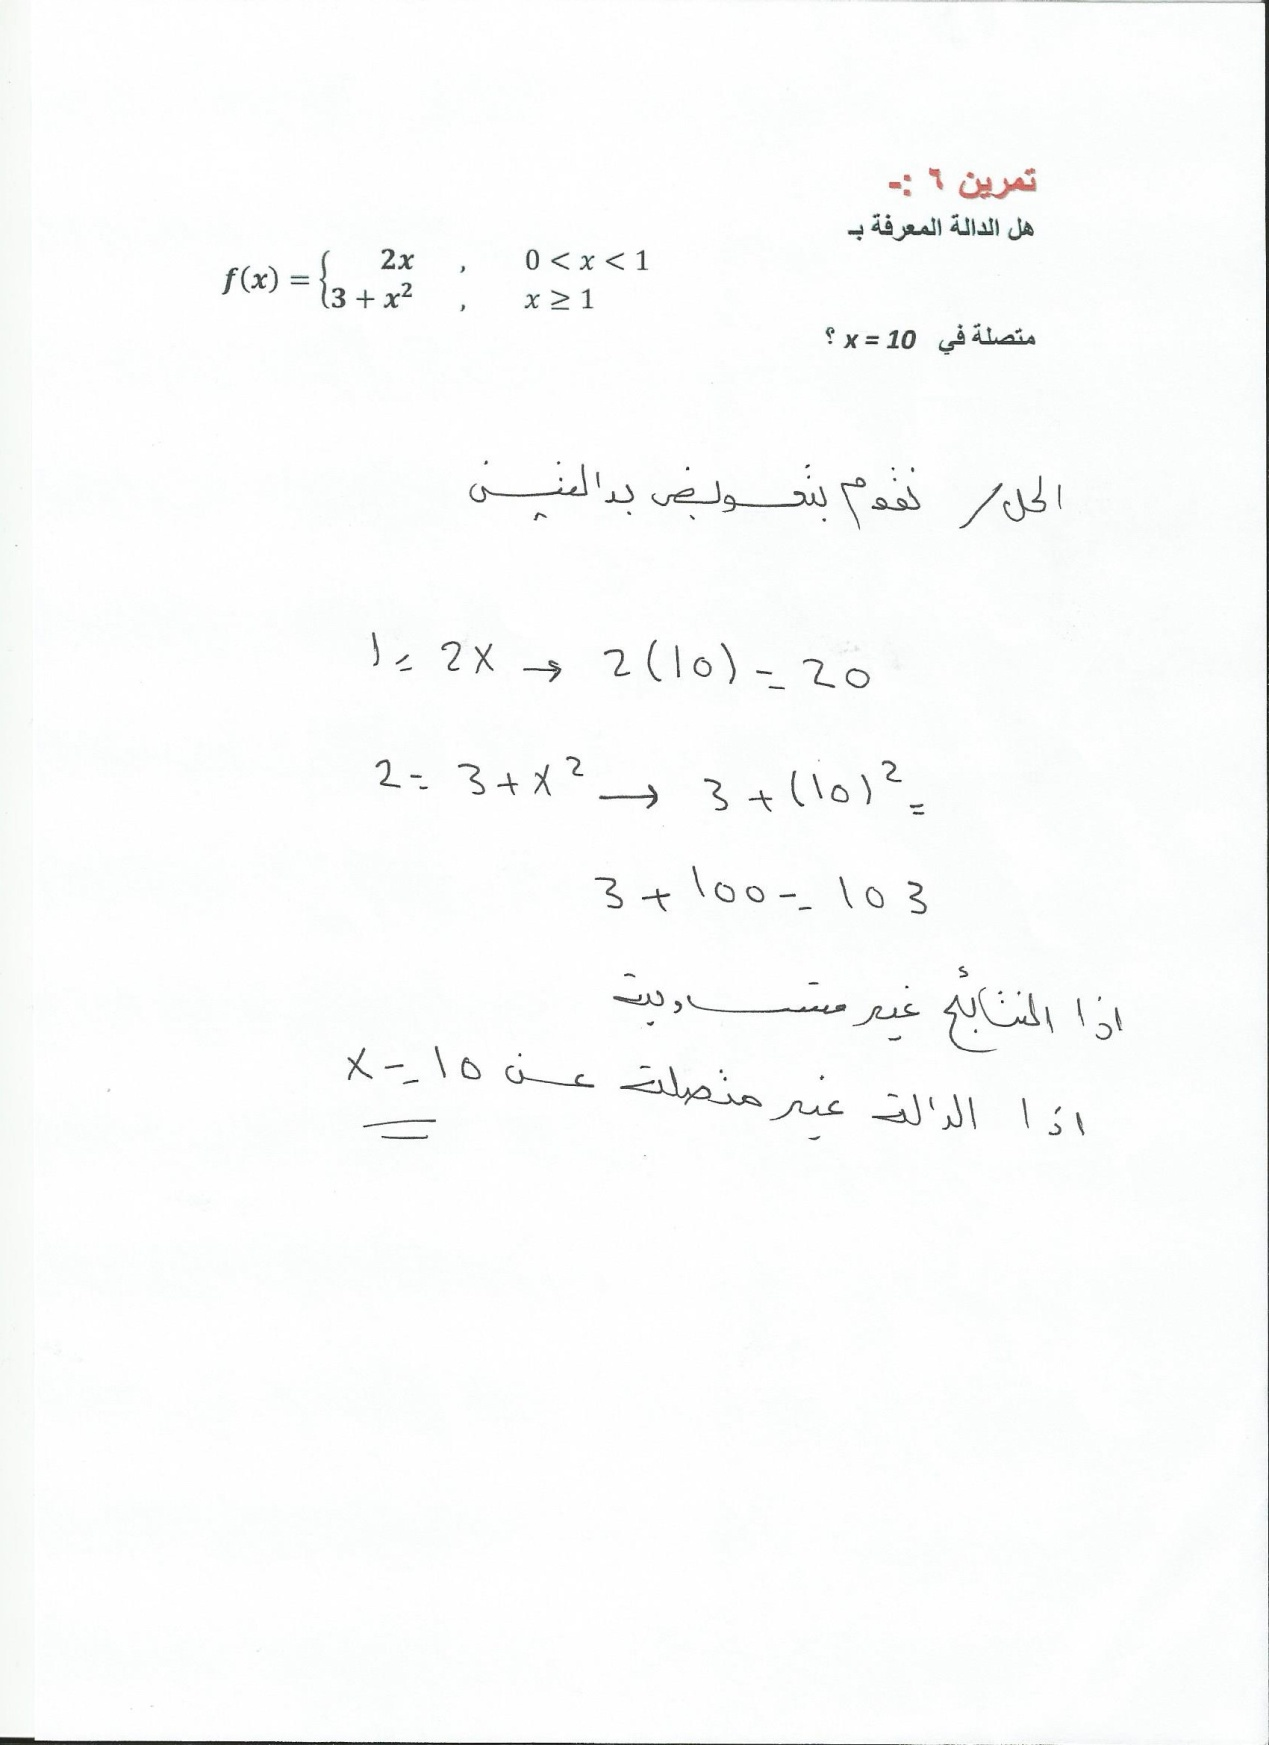 تمرين ٦ :-
هل الدالة المعرفة بـ
f(x) = { 2x , 0 < x < 1
3 + x² , x ≥ 1
متصلة في x = 10 ؟
الحل / نقوم بتعويض بدالتين
1 = 2x → 2(10) = 20
2 = 3 + x² → 3 + (10)² =
3 + 100 = 103
اذا النتائج غير متساوية
اذا الدالة غير متصلة عن x = 10